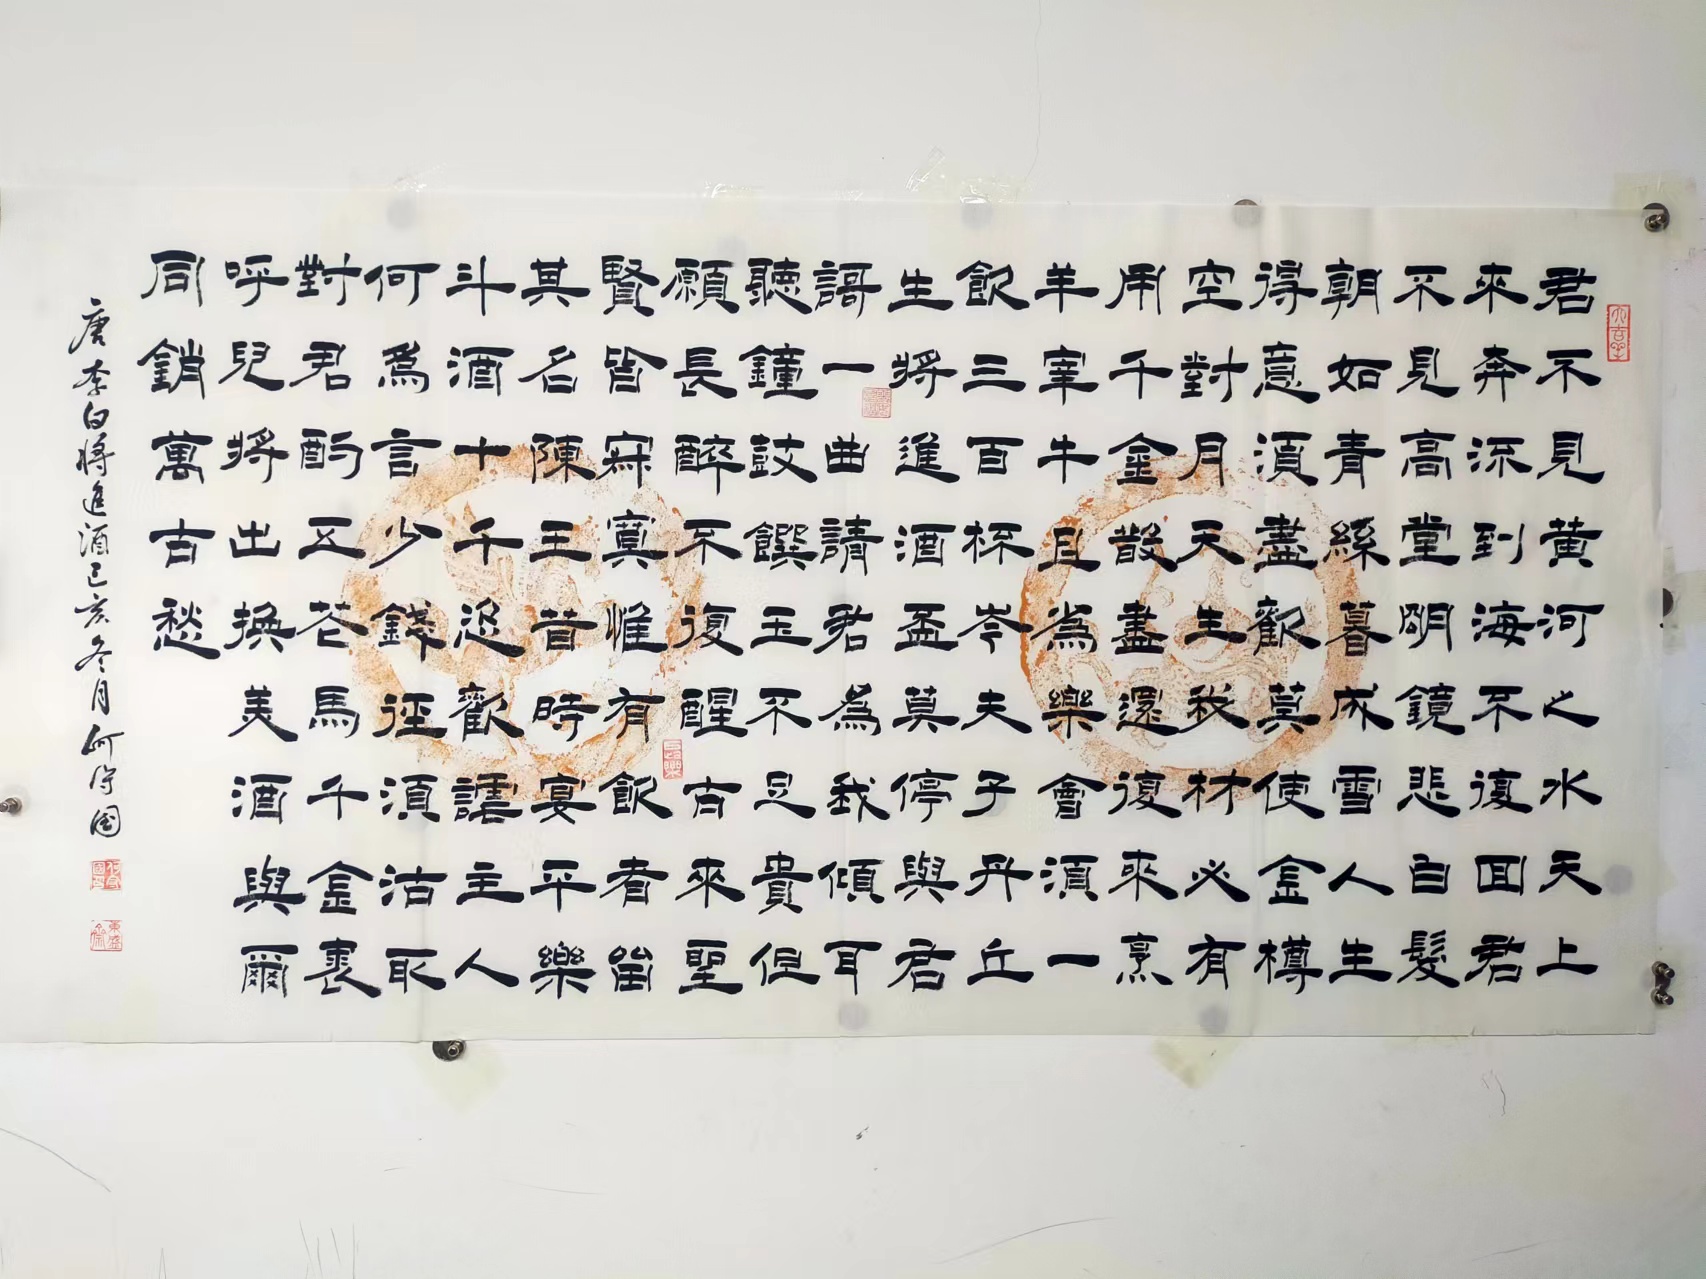 君不見黃河之水天上
來奔流到海不復回君
不見高堂明鏡悲白髮
朝如青絲暮成雪人生
得意須盡歡莫使金樽
空對月天生我材必有
用千金散盡還復來烹
羊宰牛且為樂會須一
飲三百杯岑夫子丹丘
生將進酒盃莫停與君
謌一曲請君為我傾耳
聽鐘鼓饌玉不足貴但
願長醉不復醒古來聖
賢皆寂寞惟有飲者留
其名陳王昔時宴平樂
斗酒十千恣歡謔主人
何為言少錢徑須沽取
對君酌五芲馬千金裘
呼兒將出換美酒與爾
同銷萬古愁
唐李白將進酒己亥冬月何得國